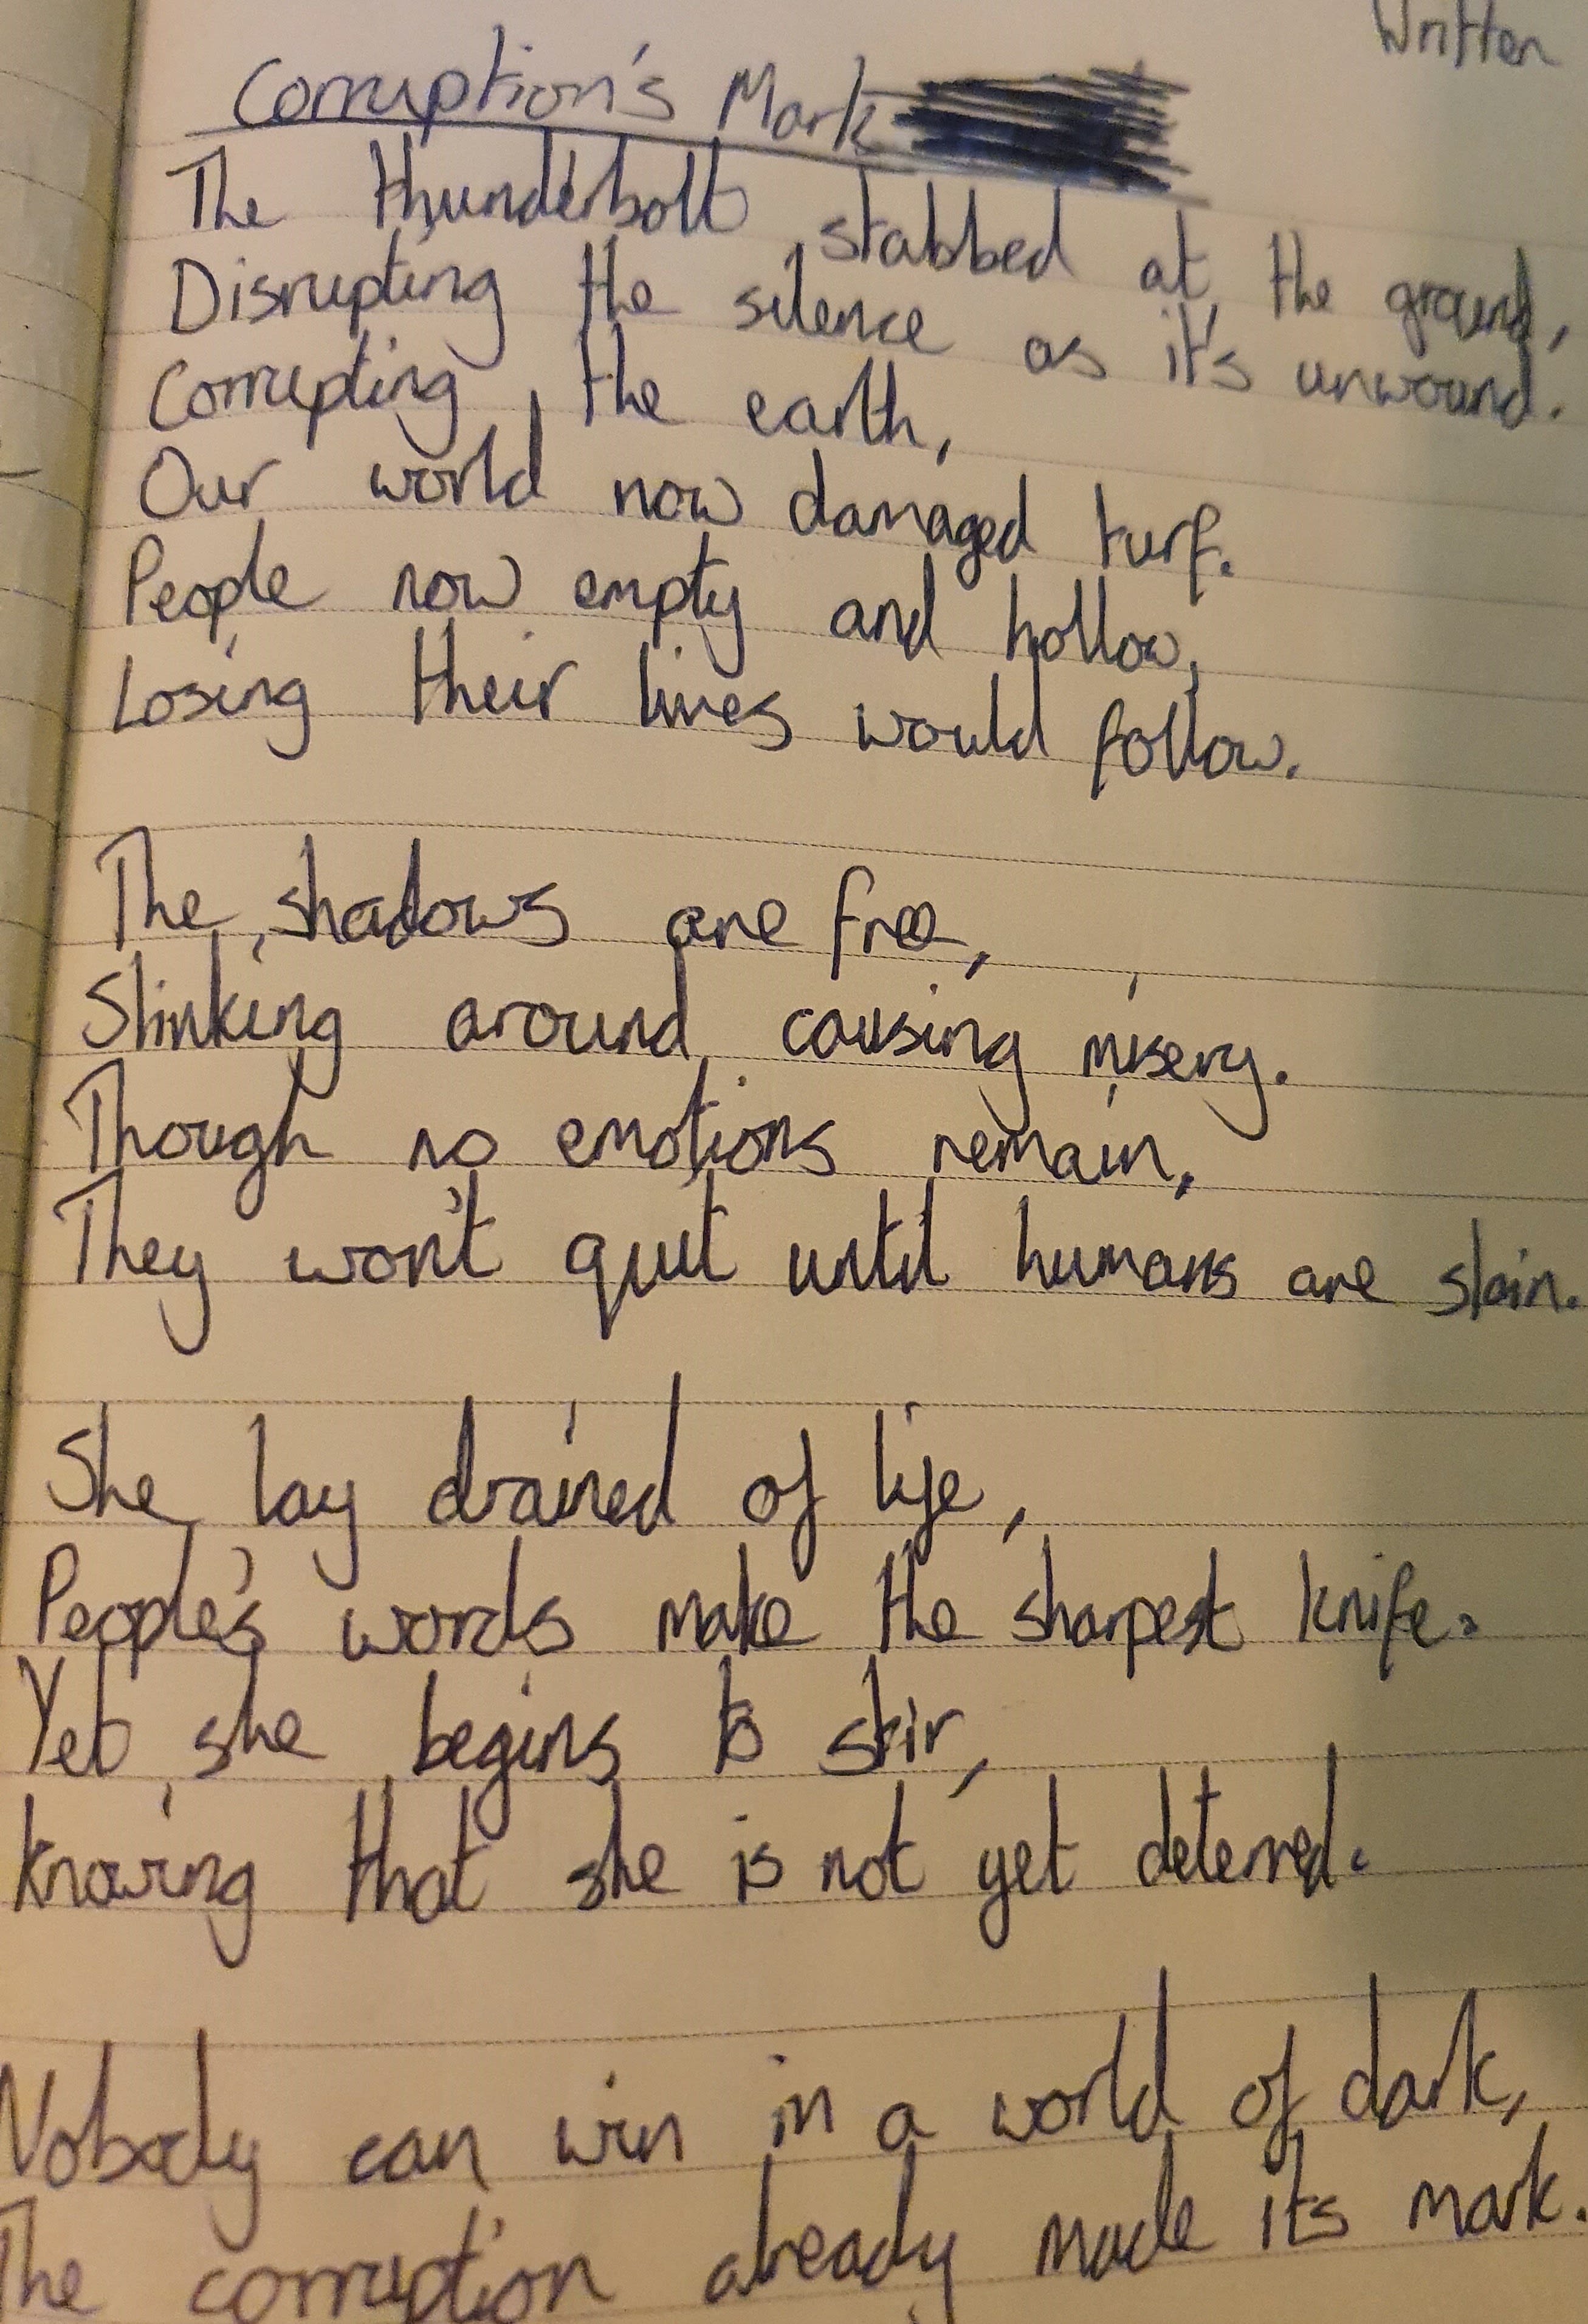 Written
Corruption's Mark
The thunderbolt stabbed at the ground,
Disrupting the silence as it's unwound.
Corrupting the earth,
Our world now damaged turf.
People now empty and hollow,
Losing their lives would follow.
The shadows are free,
Slinking around causing misery.
Though no emotions remain,
They won't quit until humans are slain.
She lay drained of life,
People's words make the sharpest knife.
Yet she begins to stir,
Knowing that she is not yet deterred.
Nobody can win in a world of dark,
The corruption already made its mark.